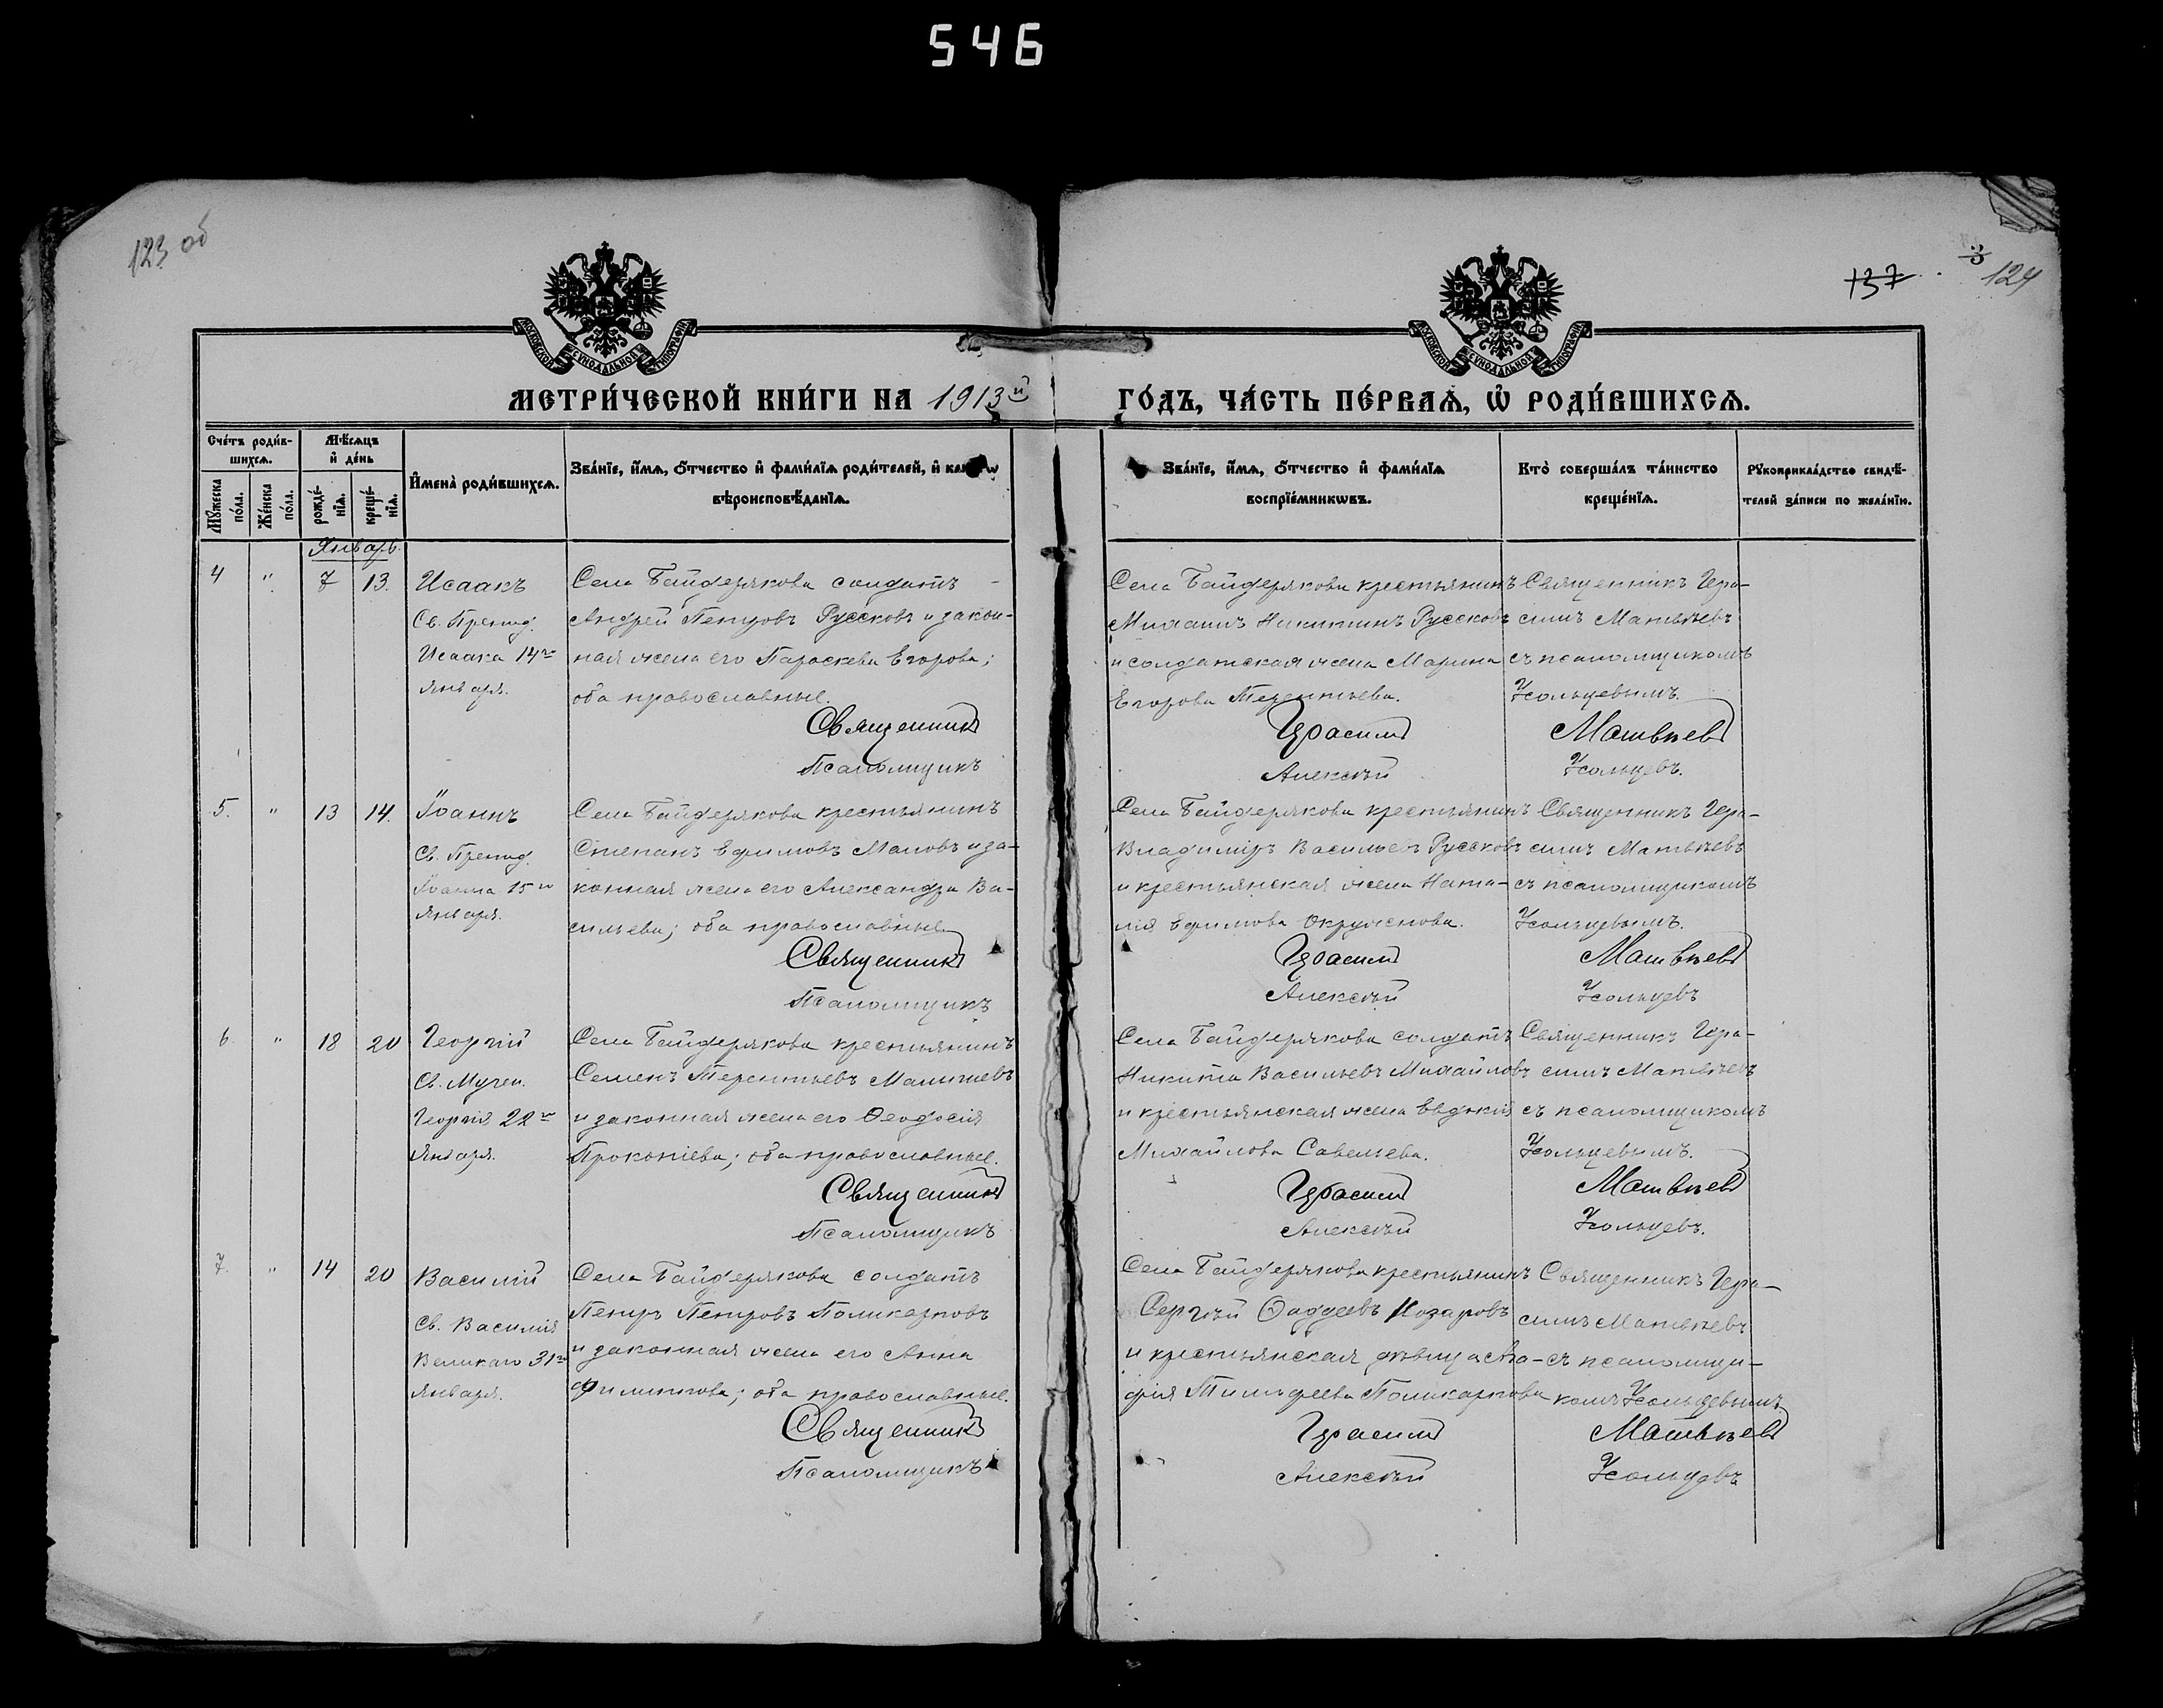 546
123 об
137
3
124
МОСКОВСКОЙ СУНОДАЛЬНОЙ ТИПОГРАФІИ
МОСКОВСКОЙ СУНОДАЛЬНОЙ ТИПОГРАФІИ
МЕТРИ́ЧЕСКОЙ КНИ́ГИ НА 1913й ГО́ДЪ, ЧА́СТЬ ПЕ́РВАѦ, Ѡ҆ РОДИ́ВШИХСѦ.
Сче́тъ роди́в-
шихсѧ.
Мѣ́сѧцъ
и҆ де́нь
Мꙋ́жеска по́ла.
Же́нска по́ла.
рожде́-
нїѧ.
креще́-
нїѧ.
И҆мена̀ роди́вшихсѧ.
Зва́нїе, и҆́мѧ, ѻ҆́тчество и҆ фами́лїѧ роди́телей, и҆
вѣроисповѣ́данїѧ.
Зва́нїе, и҆́мѧ, ѻ҆́тчество и҆ фами́лїѧ
воспрїе́мникѡвъ.
Кто̀ соверша́лъ та́инство
креще́нїѧ.
Рꙋкоприкла́дство свидѣ́-
телей за́писи по жела́нїю.
Январь.
4 " 7 13.
Исаакъ
Св. Препод.
Исаака 14го
января.
Села Байдерякова солдатъ
Андрей Петровъ Руссковъ и закон-
ная жена его Параскева Егорова;
оба православные.
Священникъ
Псаломщикъ
Села Байдерякова крестьянинъ
Михаилъ Никитинъ Руссковъ
и солдатская жена Марина
Егорова Терентьева.
Герасимъ
Алексѣй
Священникъ Гера-
симъ Матвѣевъ
съ псаломщикомъ
Усольцевымъ.
Матвѣевъ
Усольцевъ.
5. " 13 14.
Іоаннъ
Св. Препод.
Іоанна 15го
января.
Села Байдерякова крестьянинъ
Степанъ Ефимовъ Маловъ и за-
конная жена его Александра Ва-
сильева; оба православные
Священникъ
Псаломщикъ
Села Байдерякова крестьянинъ
Владиміръ Васильевъ Руссковъ
и крестьянская жена Ната-
лія Ефимова Окружнова.
Герасимъ
Алексѣй
Священникъ Гера-
симъ Матвѣевъ
съ псаломщикомъ
Усольцевымъ.
Матвѣевъ
Усольцевъ
6. " 18 20
Георгій
Св. Мучен.
Георгія 22го
января.
Села Байдерякова крестьянинъ
Семенъ Терентьевъ Малышевъ
и законная жена его Ѳеодосія
Прокопіева; оба православные.
Священникъ
Псаломщикъ
Села Байдерякова солдатъ
Никита Васильевъ Михайловъ
и крестьянская жена Евдокія
Михайлова Савельева.
Герасимъ
Алексѣй
Священникъ Гера-
симъ Матвѣевъ
съ псаломщикомъ
Усольцевымъ.
Матвѣевъ
Усольцевъ.
7. " 14 20
Василій
Св. Василія
Великаго 31го
января.
Села Байдерякова солдатъ
Петръ Петровъ Поликарповъ
и законная жена его Анна
Филиппова; оба православные.
Священникъ
Псаломщикъ
Села Байдерякова крестьянинъ
Сергѣй Ѳаддеевъ Назаровъ
и крестьянская дѣвица Ага-
фія Тимофеева Поликарпова
Герасимъ
Алексѣй
Священникъ Гера-
симъ Матвѣевъ
съ псаломщи-
комъ Усольцевымъ
Матвѣевъ
Усольцевъ